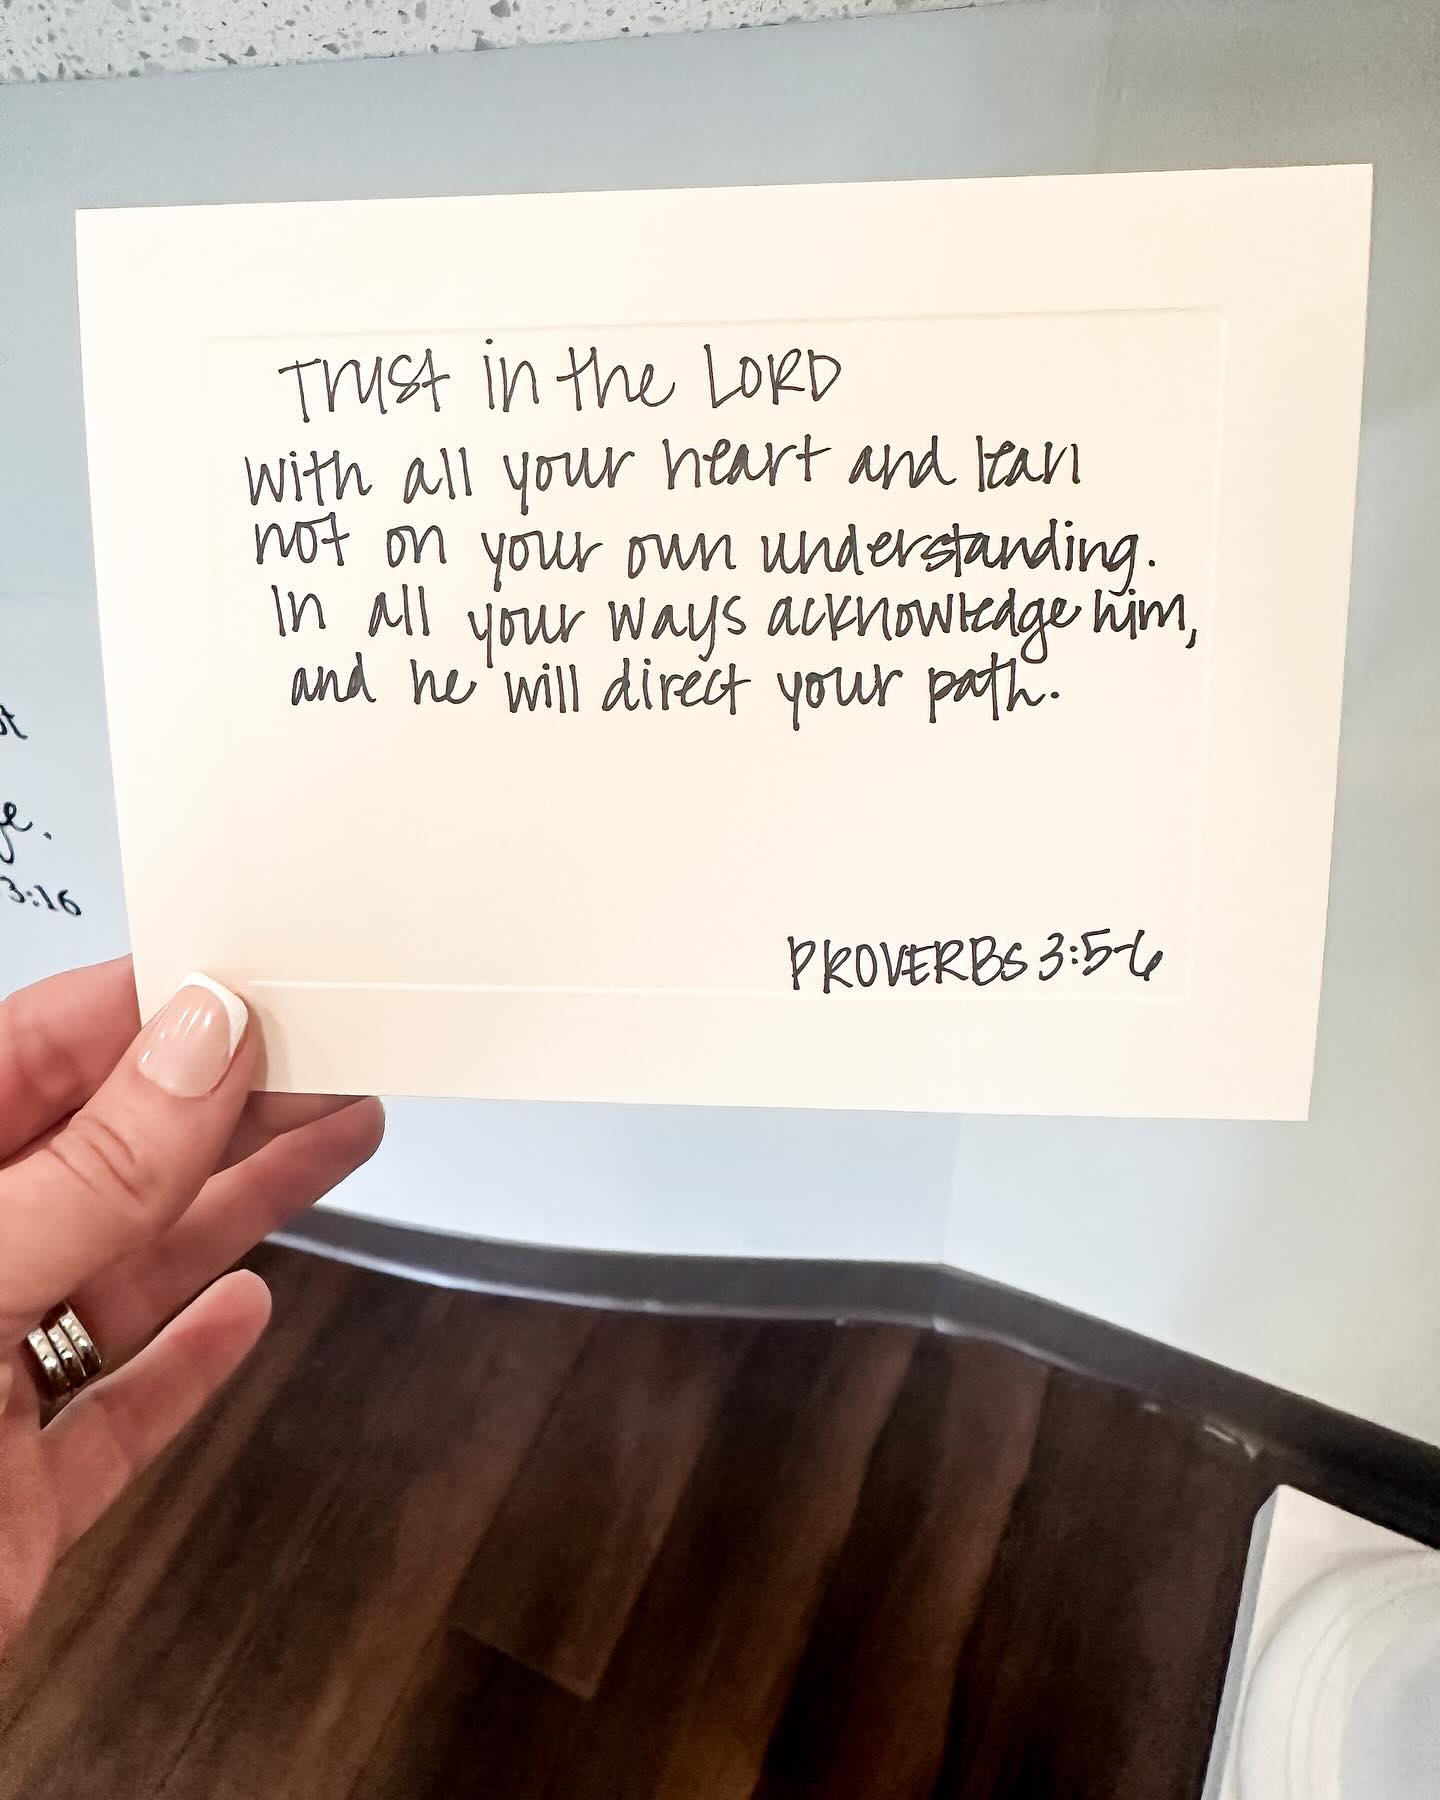 Trust in the LORD
with all your heart and lean
not on your own understanding.
In all your ways acknowledge him,
and he will direct your path.
PROVERBS 3:5-6
3:16